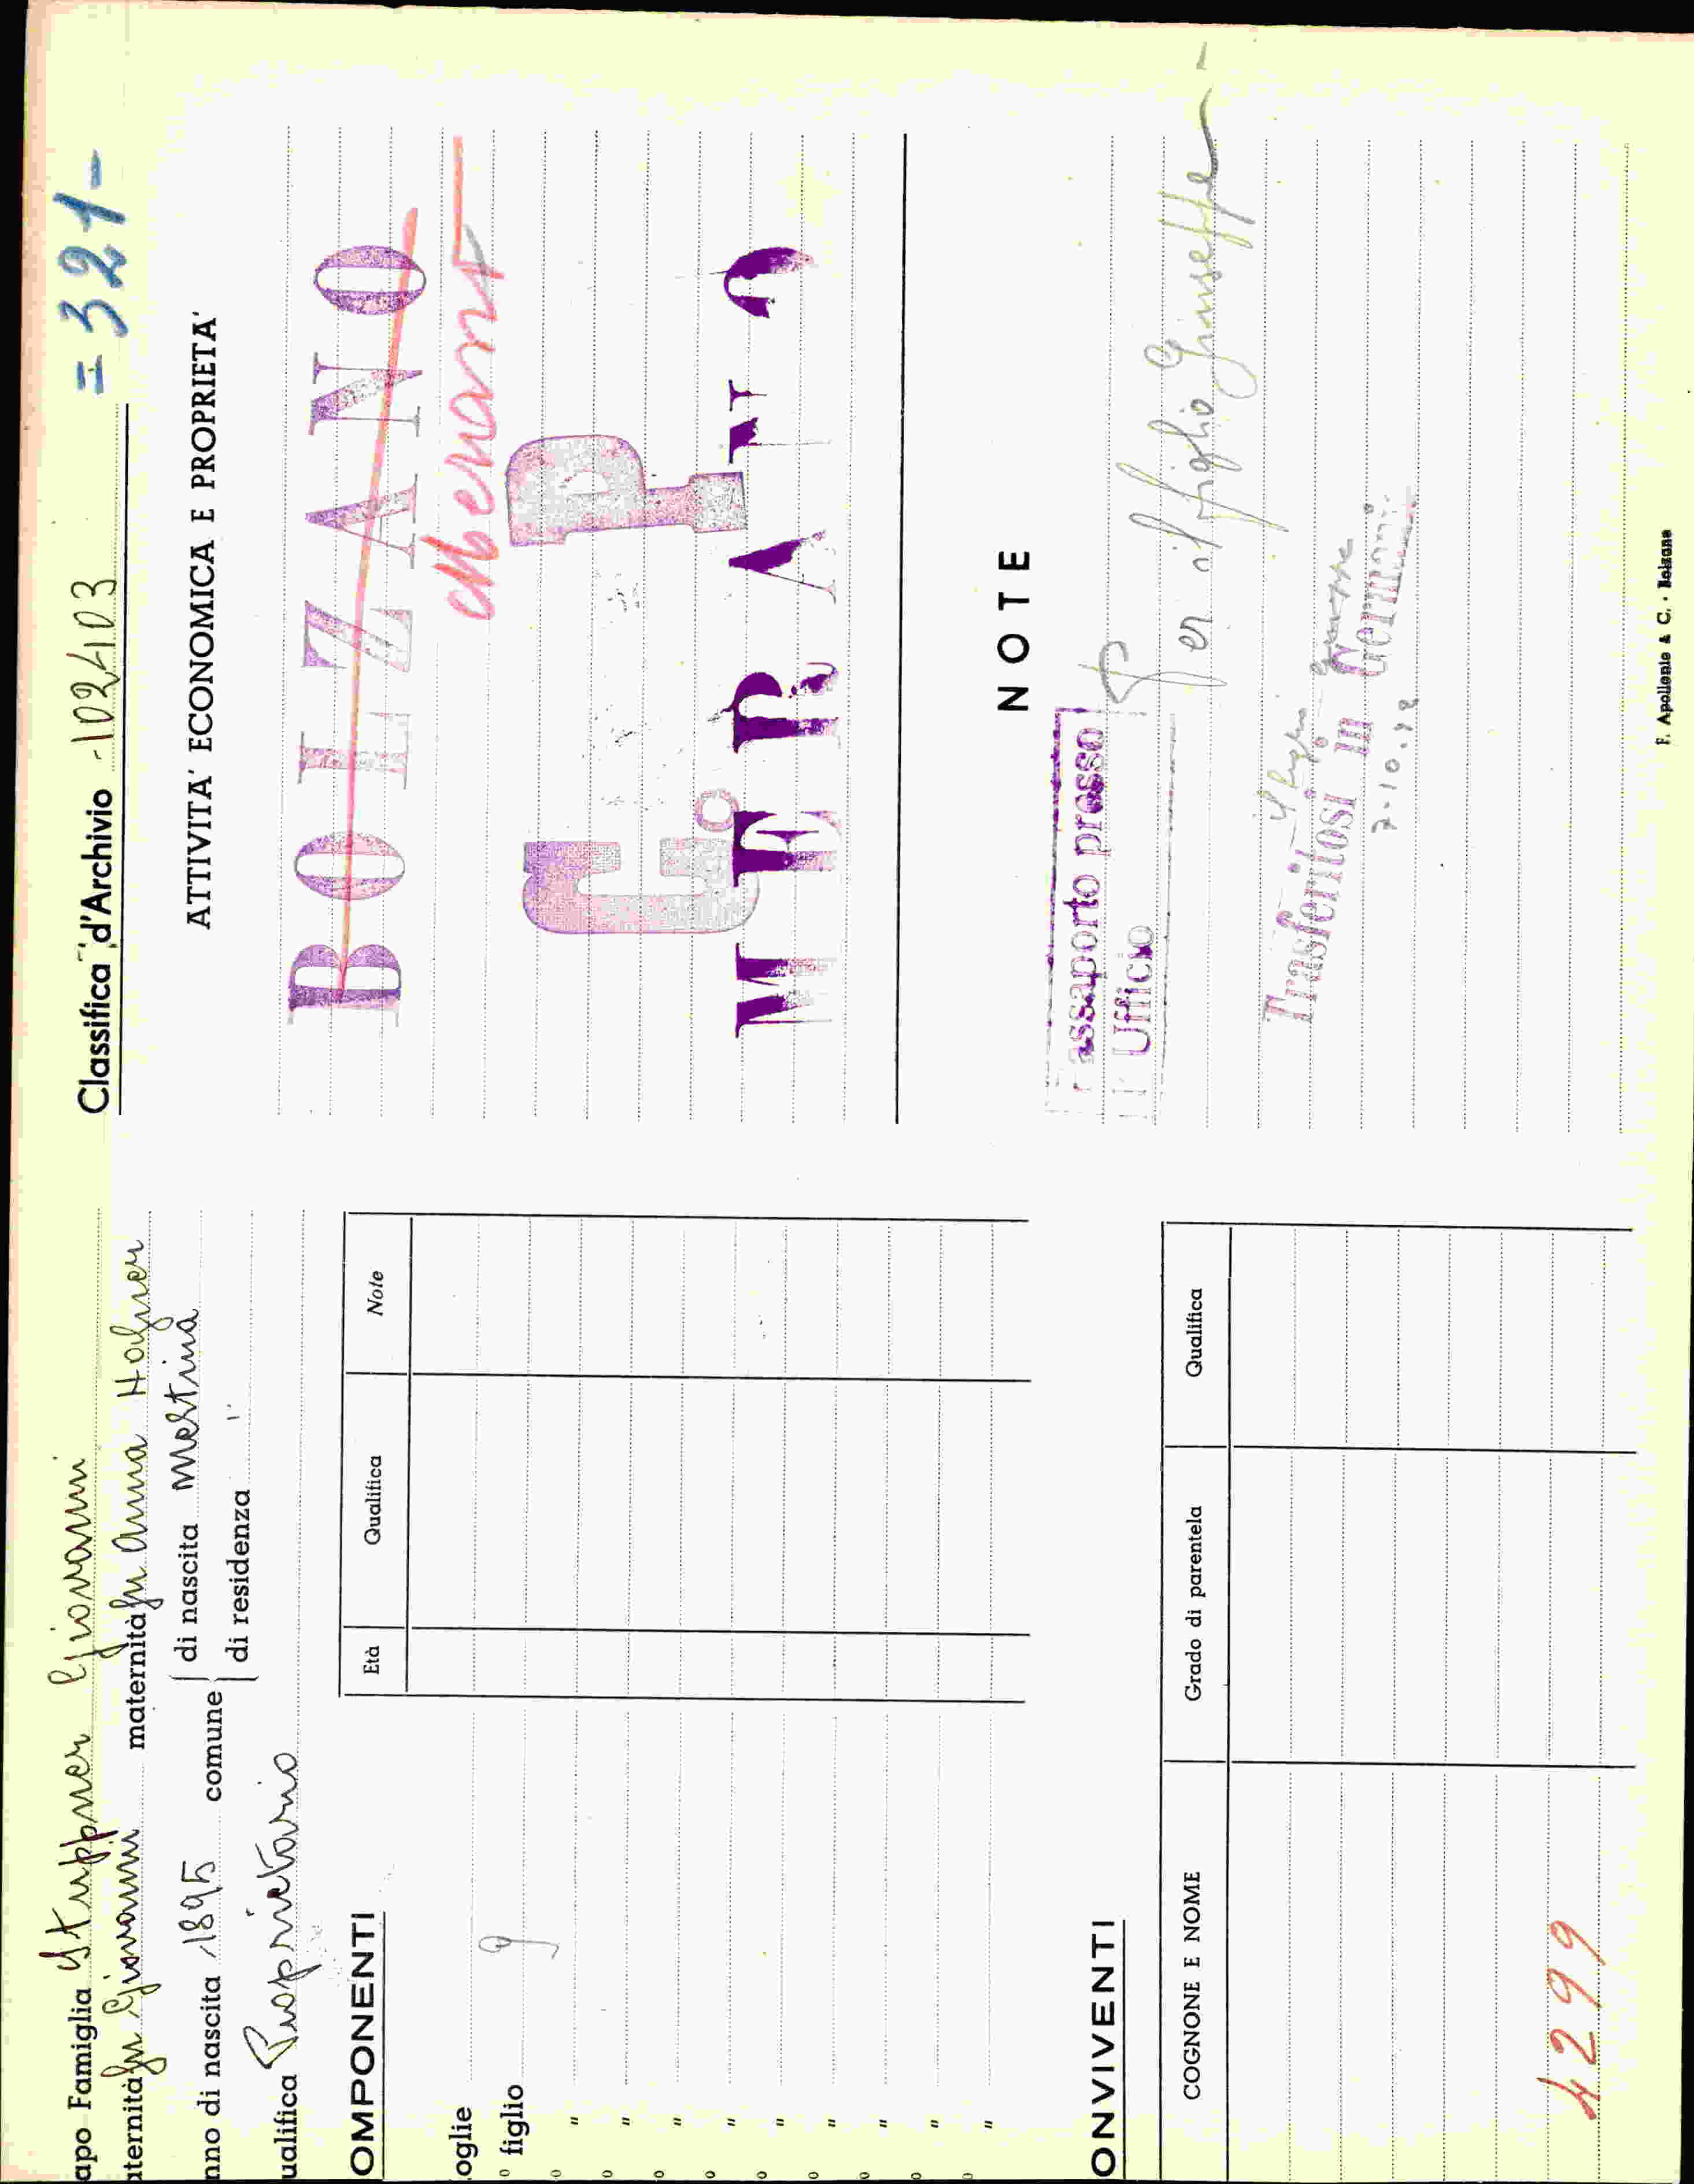 apo Famiglia Stuppner Giovanni
aternità fu Giovanni maternità fu Anna Hofner
nno di nascita 1895 comune di nascita Meltina
di residenza "
ualifica Proprietario
OMPONENTI
Età Qualifica Note
oglie
o figlio 9
o "
o "
o "
o "
o "
o "
o "
o "
o "
ONVIVENTI
COGNONE E NOME Grado di parentela Qualifica
4299
Classifica d'Archivio - 102403 = 321 -
ATTIVITA' ECONOMICA E PROPRIETA'
BOLZANO
Merano
C.P.
MERANO
NOTE
assaporto presso
Ufficio
Per il figlio Giuseppe -
il figlio
Trasferitosi in Germania
7-10.42
F. Apollonio & C. - Bolzano